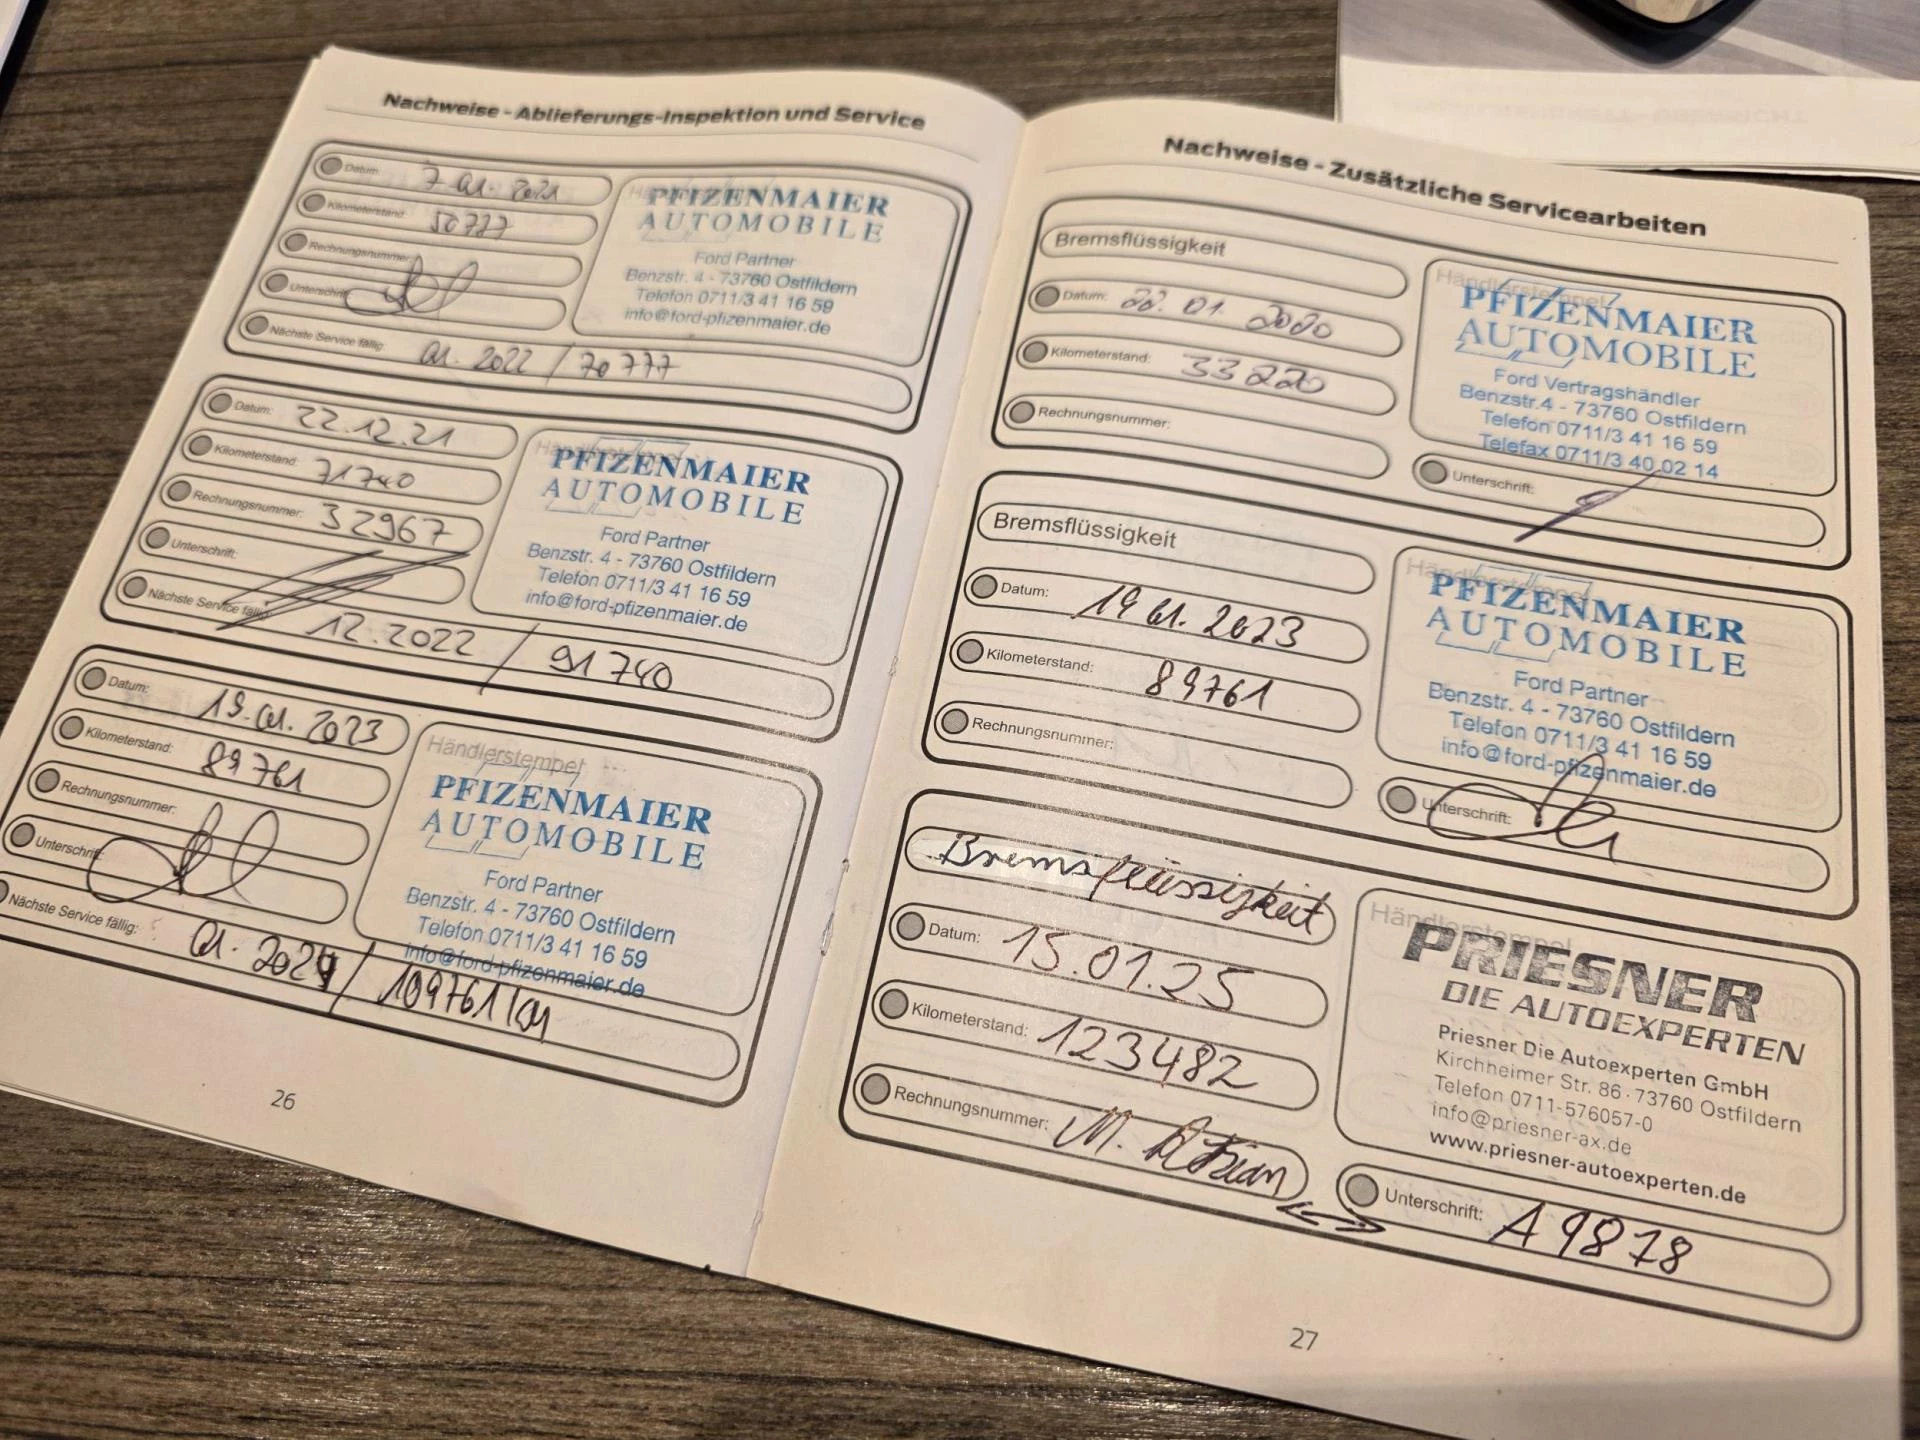 Nachweise - Ablieferungs-Inspektion und Service
Datum: 7 01. 2021
Kilometerstand: 50777
Rechnungsnummer:
Unterschrift:
Nächste Service fällig: 01. 2022 / 70 777
PFIZENMAIER
AUTOMOBILE
Ford Partner
Benzstr. 4 - 73760 Ostfildern
Telefon 0711/3 41 16 59
info@ford-pfizenmaier.de
Datum: 22.12.21
Kilometerstand: 71740
Rechnungsnummer: 32967
Unterschrift:
Nächste Service fällig: 12.2022 / 91740
Händlerstempel
PFIZENMAIER
AUTOMOBILE
Ford Partner
Benzstr. 4 - 73760 Ostfildern
Telefon 0711/3 41 16 59
info@ford-pfizenmaier.de
Datum: 19.01.2023
Kilometerstand: 89761
Rechnungsnummer:
Unterschrift:
Nächste Service fällig: 01.2024 / 109761
Händlerstempel
PFIZENMAIER
AUTOMOBILE
Ford Partner
Benzstr. 4 - 73760 Ostfildern
Telefon 0711/3 41 16 59
info@ford-pfizenmaier.de
26
Nachweise - Zusätzliche Servicearbeiten
Bremsflüssigkeit
Datum: 22. 01. 2020
Kilometerstand: 33220
Rechnungsnummer:
Händlerstempel
PFIZENMAIER
AUTOMOBILE
Ford Vertragshändler
Benzstr.4 - 73760 Ostfildern
Telefon 0711/3 41 16 59
Telefax 0711/3 40 02 14
Unterschrift:
Bremsflüssigkeit
Datum: 19 01. 2023
Kilometerstand: 89761
Rechnungsnummer:
Händlerstempel
PFIZENMAIER
AUTOMOBILE
Ford Partner
Benzstr. 4 - 73760 Ostfildern
Telefon 0711/3 41 16 59
info@ford-pfizenmaier.de
Unterschrift:
Bremsflüssigkeit
Datum: 15.01.25
Kilometerstand: 123482
Rechnungsnummer: M.
Händlerstempel
PRIESNER
DIE AUTOEXPERTEN
Priesner Die Autoexperten GmbH
Kirchheimer Str. 86 · 73760 Ostfildern
Telefon 0711-576057-0
info@priesner-ax.de
www.priesner-autoexperten.de
Unterschrift: A 9878
27